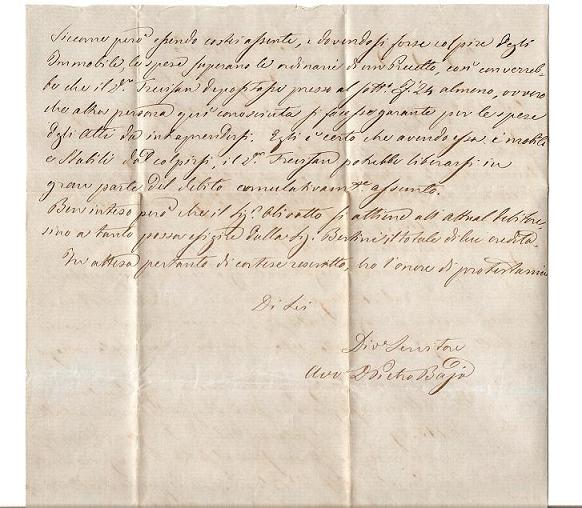 Siccome però essendo costei assente, e dovendosi forse colpire degli
Immobili, le spese superano le ordinarie di un Precetto, così converreb-
be che il Sr. Trevisan depositasse presso al sottr. 24 almeno, ovvero
che altra persona qui conosciuta si facesse garante per le spese
degli Atti da intraprendersi. Egli è certo che avendo essa e mobili
e Stabili da colpirsi, il Sr. Trevisan potrebbe liberarsi in
gran parte del debito cumulativamte assunto.
Ben inteso però che il Sigr. si attiene all'attual debitore,
sino a tanto possa esigere dalla Sigra. Bertini il totale di lui credito.
In attesa pertanto di cortese riscontro, ho l'onore di protestarmi
Di Lei
Divo Servitore
Avv. Pietro